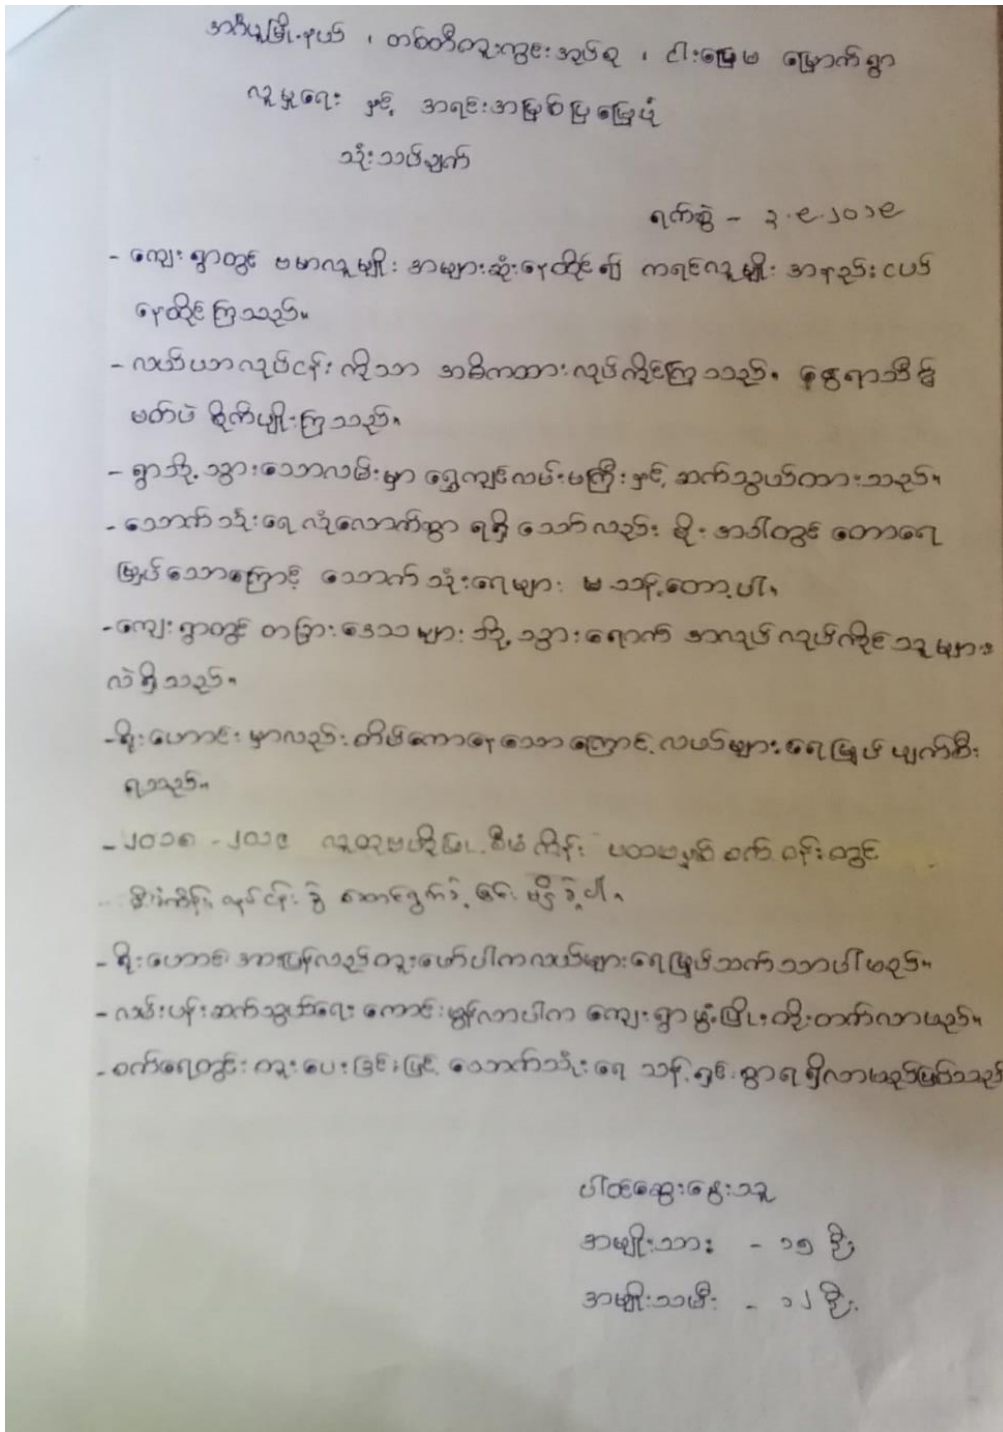 ဒိုက်ဦးမြို့နယ် ၊ တစ်တီတူးကွင်းအုပ်စု ၊ ငါးမြွေမ မြောက်ရွာ
လူမှုရေး နှင့် အရင်းအမြစ်ပြမြေပုံ
သုံးသပ်ချက်
ရက်စွဲ - ၃.၉.၂၀၁၉
- ကျေးရွာတွင် ဗမာလူမျိုး အများဆုံးနေထိုင်၍ ကရင်လူမျိုး အနည်းငယ်
နေထိုင်ကြသည်။
- လယ်ယာလုပ်ငန်း ကိုသာ အဓိကထားလုပ်ကိုင်ကြသည်။ နွေရာသီ၌
မတ်ပဲ စိုက်ပျိုးကြသည်။
- ရွာသို့ သွားသောလမ်းမှာ ရွှေကျင်လမ်းမကြီးနှင့် ဆက်သွယ်ထားသည်။
- သောက်သုံးရေ လုံလောက်စွာ ရရှိသော်လည်း မိုးအခါတွင် တောရေ
မြုပ်သောကြောင့် သောက်သုံးရေများ မသန့်တော့ပါ။
- ကျေးရွာတွင် တခြားဒေသများသို့ သွားရောက် အလုပ်လုပ်ကိုင်သူများ
လဲရှိသည်။
- ရိုးဟောင်းမှာလည်း တိမ်ကောနေသောကြောင့် လယ်များ ရေမြုပ် ပျက်စီး
ရသည်။
- ၂၀၁၈ - ၂၀၁၉ လူထုဗဟိုပြုစီမံကိန်း ပထမနှစ် စက်ဝန်းတွင်
စီမံကိန်းလုပ်ငန်းခွဲ ဆောင်ရွက်ခဲ့ခြင်း မရှိခဲ့ပါ။
- ရိုးဟောင်း အားပြန်လည်တူးဖော်ပါကလယ်များရေမြုပ်သက်သာပါမည်။
- လမ်းပန်းဆက်သွယ်ရေး ကောင်းမွန်လာပါက ကျေးရွာဖွံ့ဖြိုးတိုးတက်လာမည်။
- စက်ရေတွင်း တူးပေးခြင်းဖြင့် သောက်သုံးရေ သန့်ရှင်းစွာရရှိလာမည်ဖြစ်သည်
ပါဝင်ဆွေးနွေးသူ
အမျိုးသား - ၁၅ ဦး
အမျိုးသမီး - ၁၂ ဦး